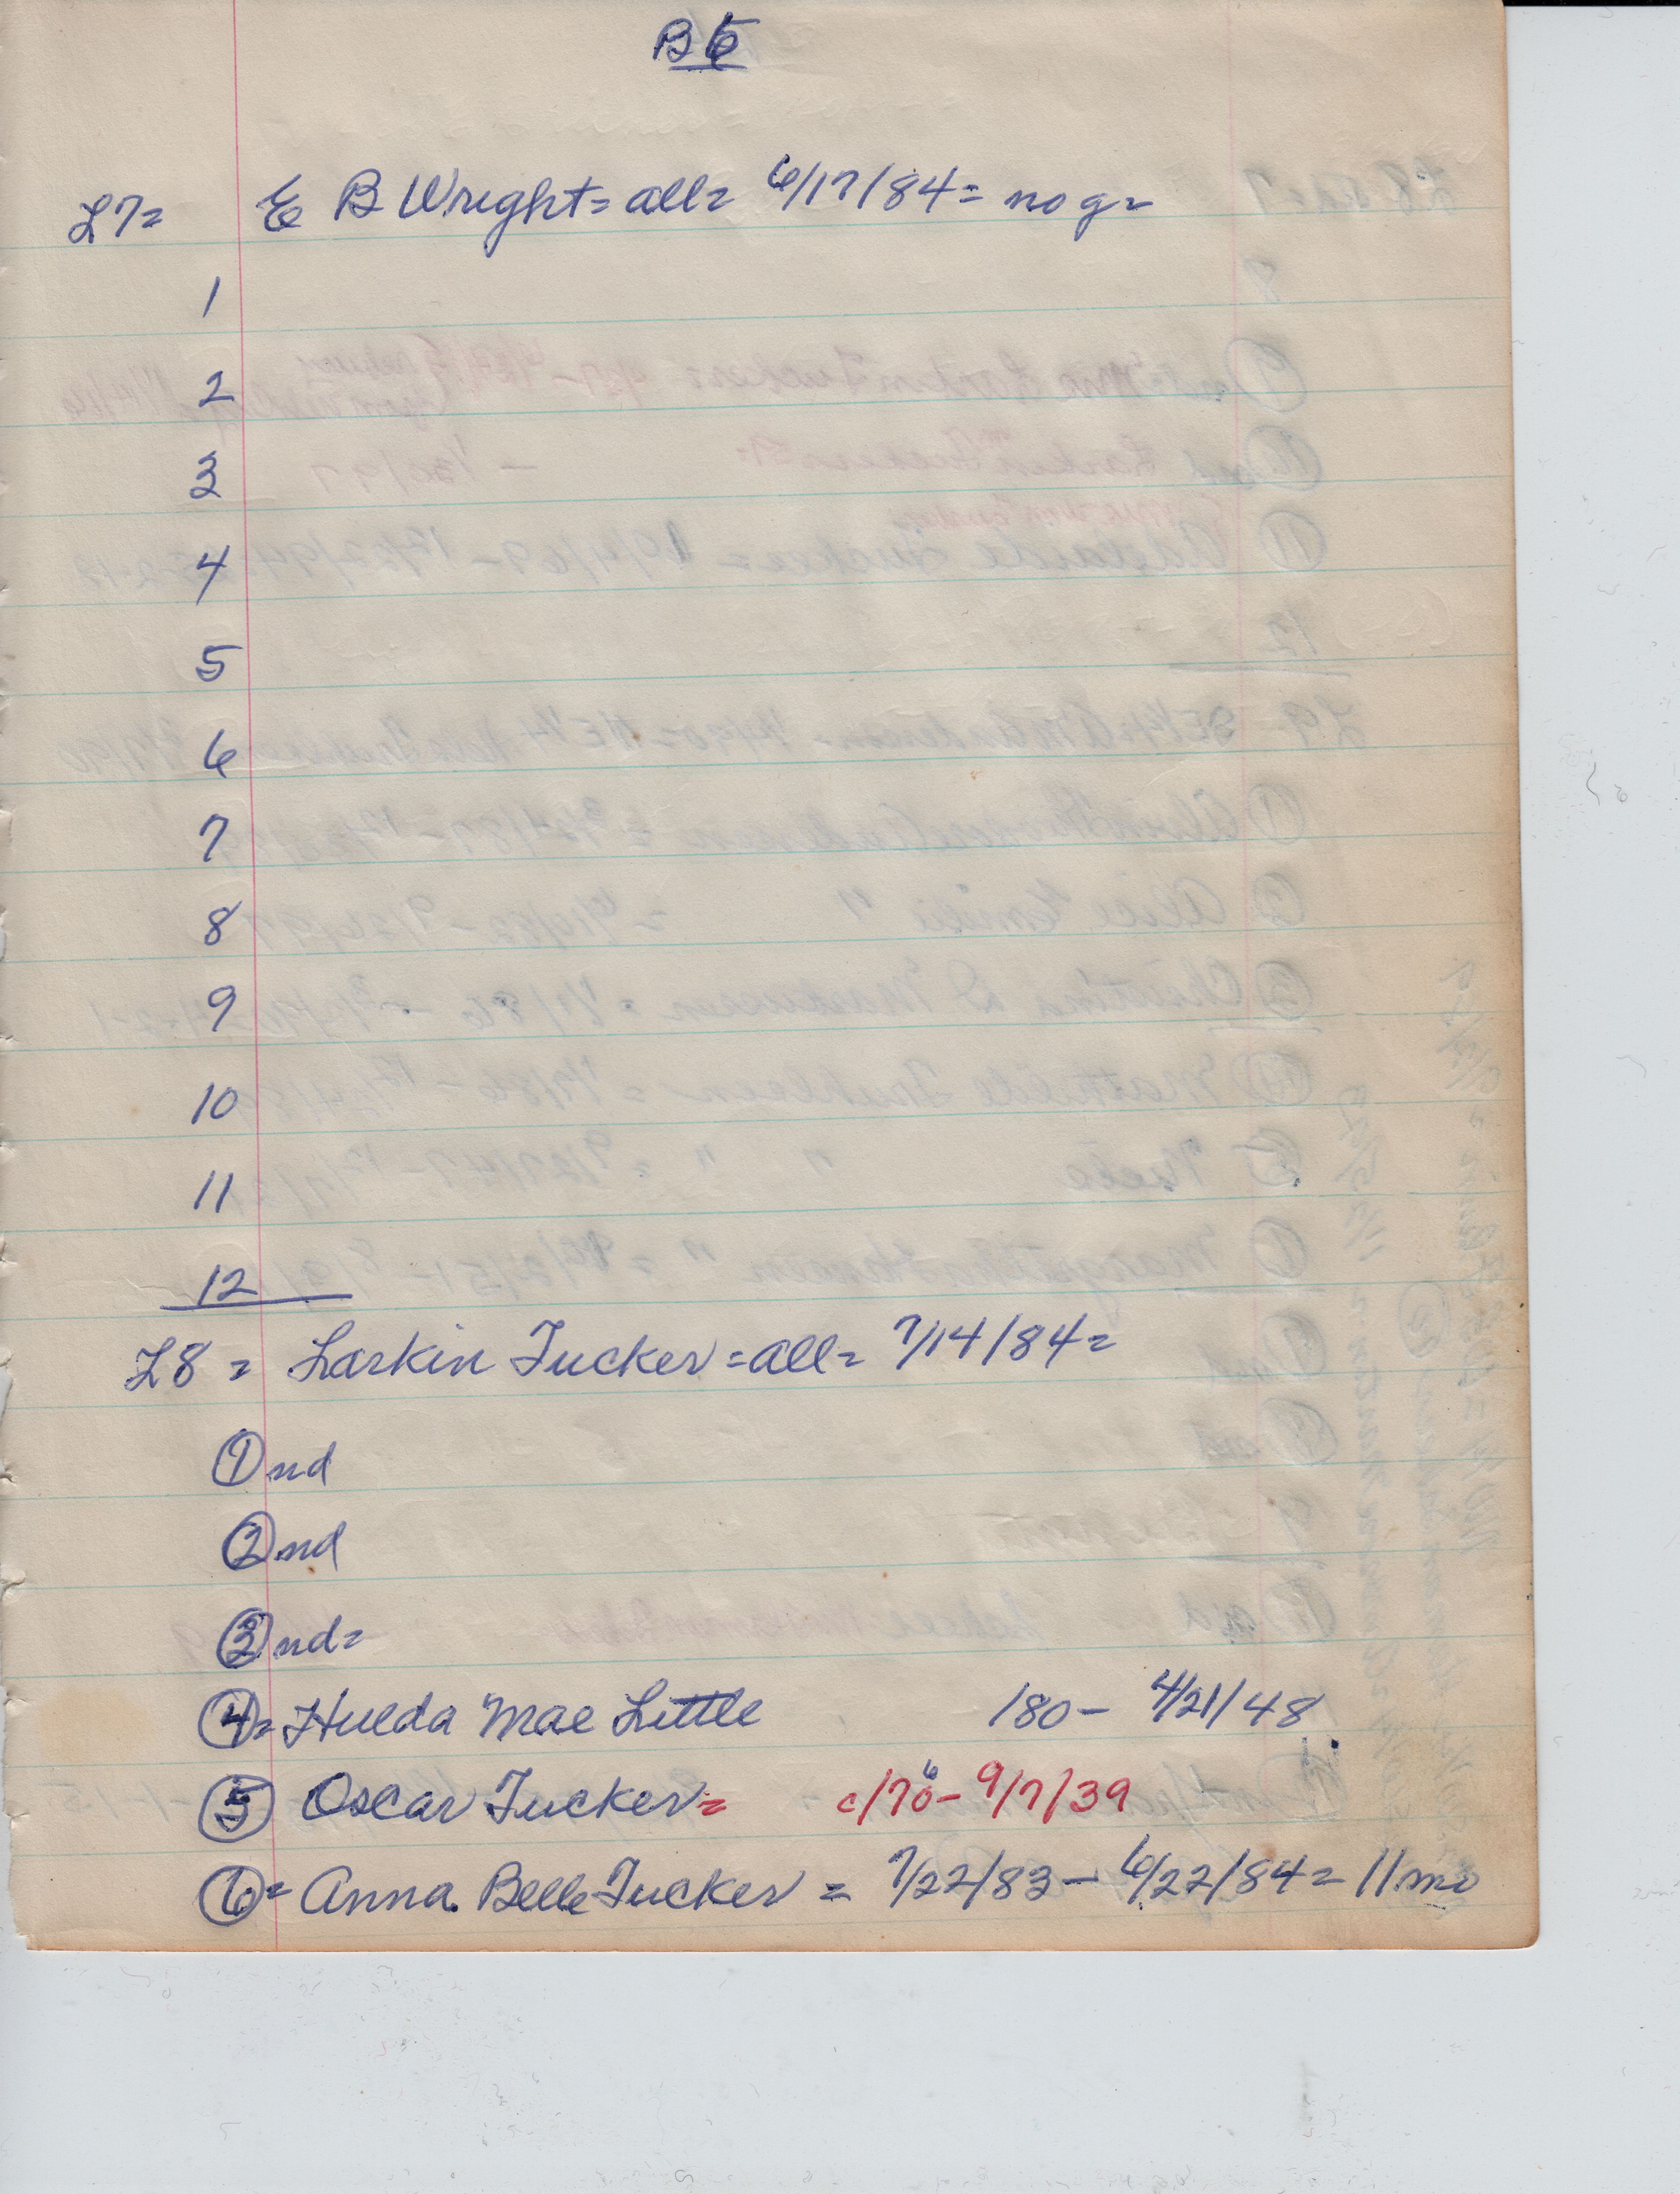 B6
L7= E B Wright= all= 6/17/84= no g=
1
2
3
4
5
6
7
8
9
10
11
12
L8 = Larkin Tucker=all= 7/14/84=
① nd
② nd
③ nd=
④= Hulda Mae Little 180- 4/21/48
⑤ Oscar Tucker= c/76- 9/7/39
⑥= Anna. Belle Tucker = 7/22/83- 6/22/84= 11 mo